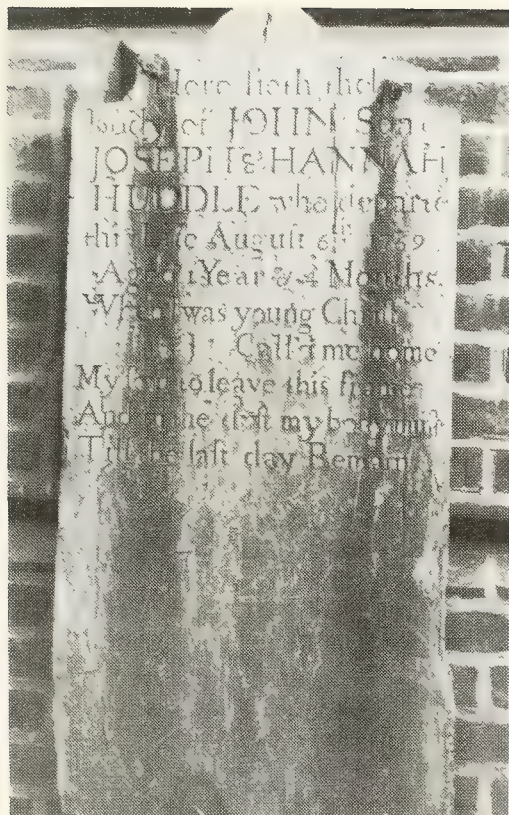 Here lieth the
body of JOHN Son
JOSEPH & HANNAH
HUDDLE who departe
this life August 6th 1769
Aged 1 Year & 4 Months.
When I was young Christ
Call'd me home
My to leave this frame
And in the dust my body must
Till the last day Remain